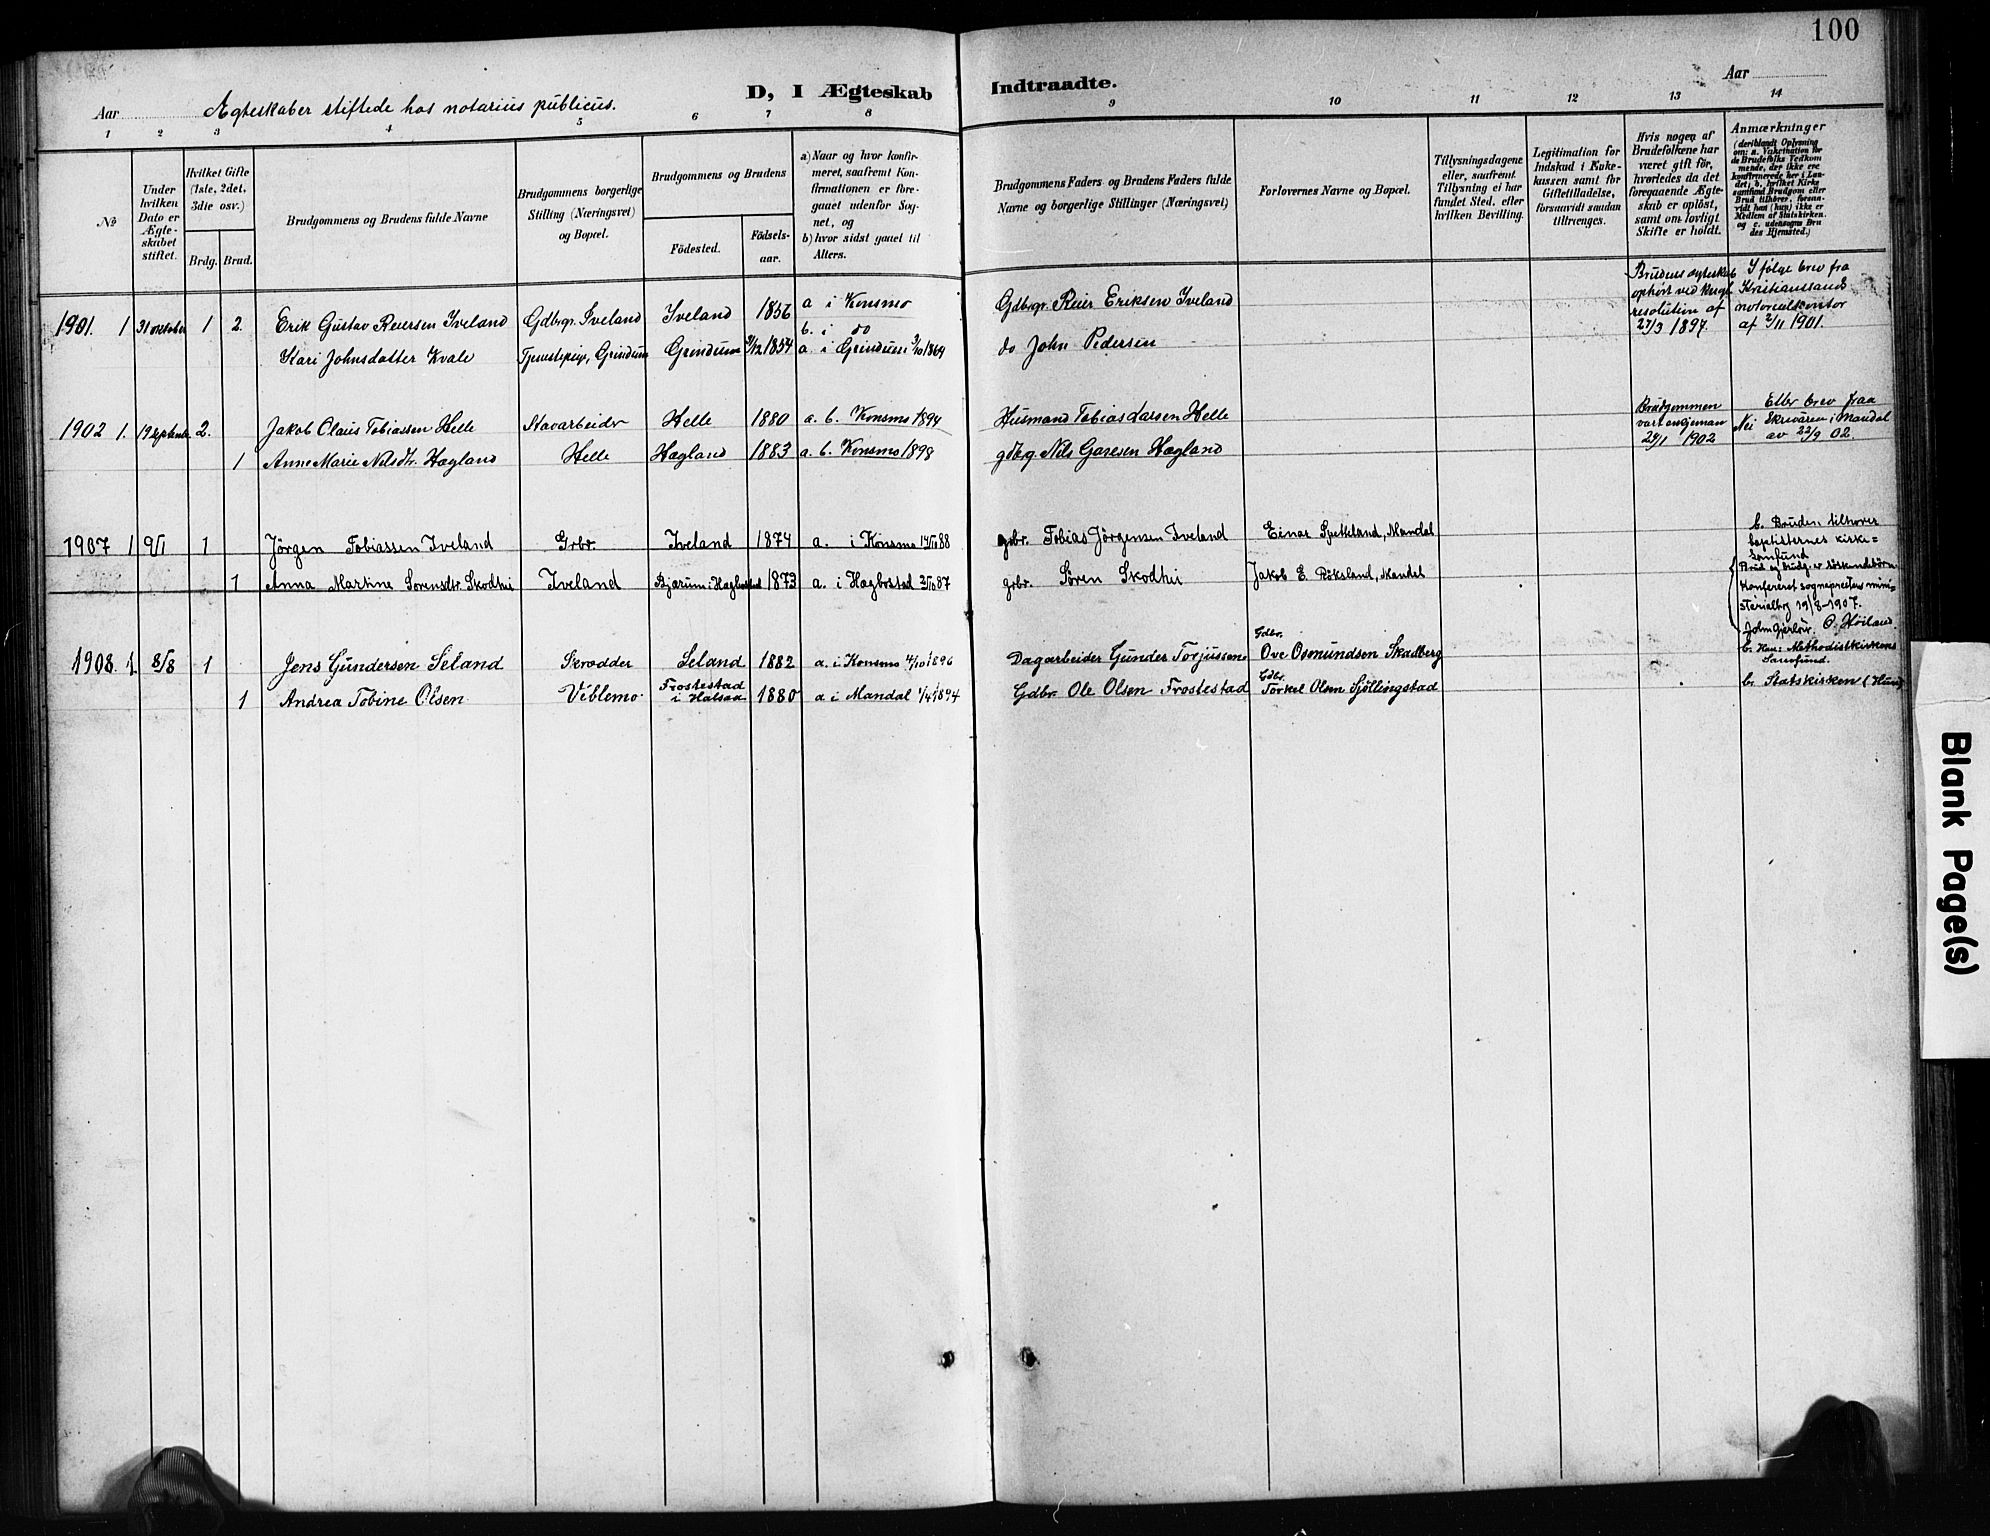 100
D, I Ægteskab Indtraadte.
Aar
Aar Ægteskaber stiftede hos notarius publicus.
1 2 3 4 5 6 7 8 9 10 11 12 13 14
No
Under hvilken Dato er Ægteskabet stiftet.
Hvilket Gifte (1ste, 2det, 3die osv.)
Brdg. Brud.
Brudgommens og Brudens fulde Navne
Brudgommens borgerlige Stilling (Næringsvei) og Bopæl.
Brudgommens og Brudens
Födested.
Födselsaar.
a) Naar og hvor konfirmeret, saafremt Konfirmationen er foregaaet udenfor Sognet, og
b) hvor sidst gaaet til Alters.
Brudgommens Faders og Brudens Faders fulde Navne og borgerlige Stillinger (Næringsvei)
Forlovernes Navne og Bopæl.
Tillysningsdagene eller, saafremt Tillysning ei har fundet Sted, efter hvilken Bevilling.
Legitimation for Indskud i Enkekassen samt for Giftetilladelse, forsaavidt saadan tiltrænges.
Hvis nogen af Brudefolkene har været gift för, hvorledes da det foregaaende Ægteskab er oplöst, samt om lovligt Skifte er holdt.
Anmærkninger
1901. 1 31 oktober 1 2. Erik Gustav Reiersen Iveland Gdbrgr. Iveland Iveland 1856 a i Konsmo b. i do Gdbrgr. Reier Eriksen Iveland
Kari Johnsdatter Kvale Tjenestepige, Grindum Grindum 9/12 1854 a. i Grindum 9/10 1869 do John Pedersen
Brudens ægteskab ophört ved kngl. resolution af 27/3 1897.
I fölge brev fra Kristianssands notorialkontor af 2/11 1901.
1902 1. 19 september 2. Jakob Olaus Tobiassen Helle Havarbeider Helle 1880 a. b. Konsmo 1894 Husmand Tobias Larsen Helle
1 Anne Marie Nilsdtr. Hægland Helle Hægland 1883 a. b. Konsmo 1898 gdbrg. Nils Hægland
Brudgommen vart enkjeman 24/1 1902
Nei
Etter brev fraa Skrivären i Mandal av 22/9 02.
1907 1 9/1 1 Jörgen Tobiassen Iveland Grbr. Iveland 1874 a. i Konsmo 14/10 88 grbr. Tobias Jörgensen Iveland Einar Spetteland, Mandal
1 Anna Martine Sörensdtr. Skodhei Iveland Bjærum i Hægbostad 1873 a. i Hægbostad 2/10 87 grbr. Sören Skodhei Jakob E. Röksland, Mandal
b. Bruden tilhörer baptisternes kirkesamfund
Brud og brudg. er söskendebörn
Konfereret sogneprestens ministerialbog 19/8-1907.
O. Höiland.
1908. 1. 8/8 1 Jens Gundersen Seland Skrædder Seland 1882 a. i Konsmo 4/10 1896 Dagarbeider Gunder Torjussen Gdbr. Ove Osmundsen Skadberg
b. Han: Methodistkirkens Samfund.
1 Andrea Tobine Olsen Viblemo Frostestad i Halsaa 1880 a i Mandal 1/4 1894 Gdbr. Ole Olsen Frostestad Gdbr. Torkel Olsen Sjöllingstad
b. Statskirken (Hun)
Blank Page(s)